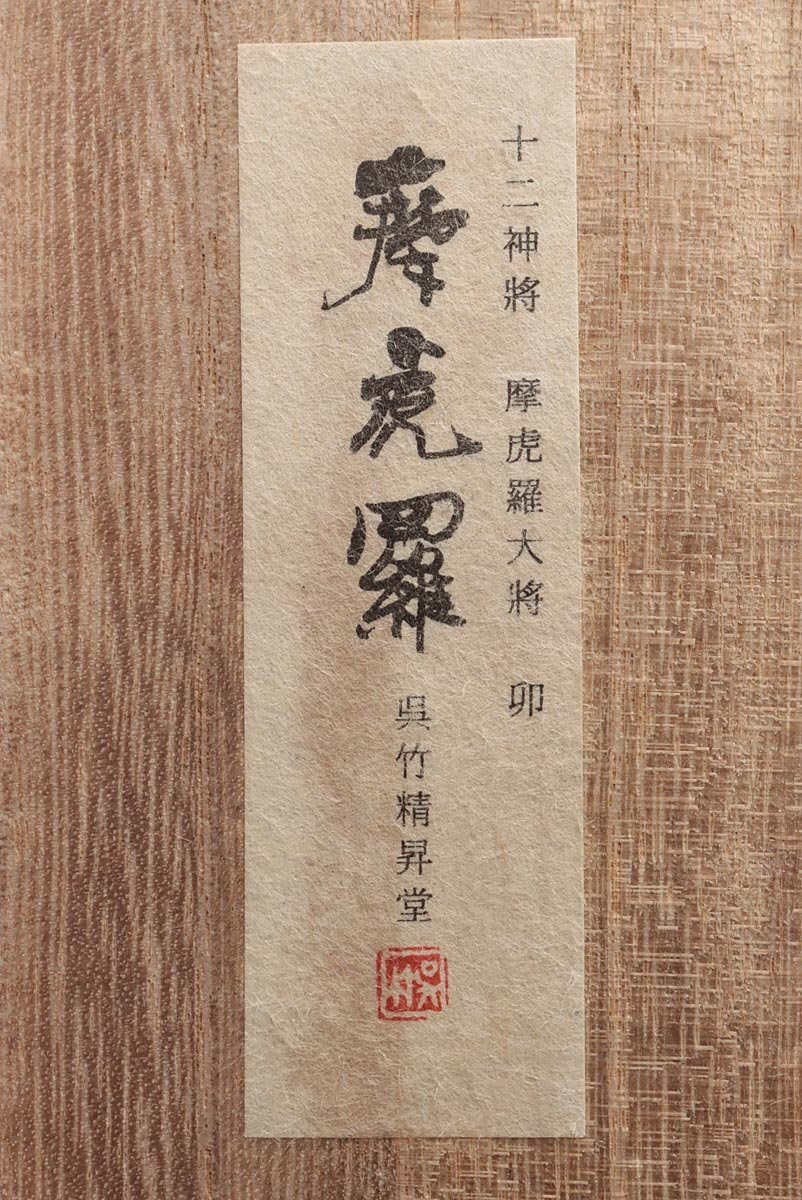 十二神將　摩虎羅大將　卯
摩虎羅
呉竹精昇堂